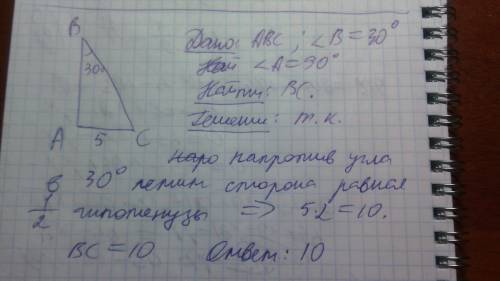 B
30°
A 5 C
Дано: ABC; ∠B=30°
∠A=90°
Найти: BC.
Решение: т.к.
напротив угла
в 30° лежит сторона равная
1/2 гипотенузы => 5·2=10.
BC=10 Ответ: 10